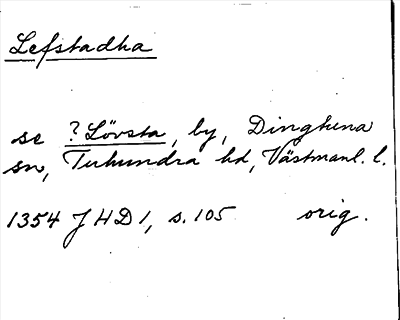 Lefstadha
se ? Lövsta, by, Dingtuna
sn, Tuhundra hd, Västmanl. l.
1354 JHD 1, s. 105 orig.